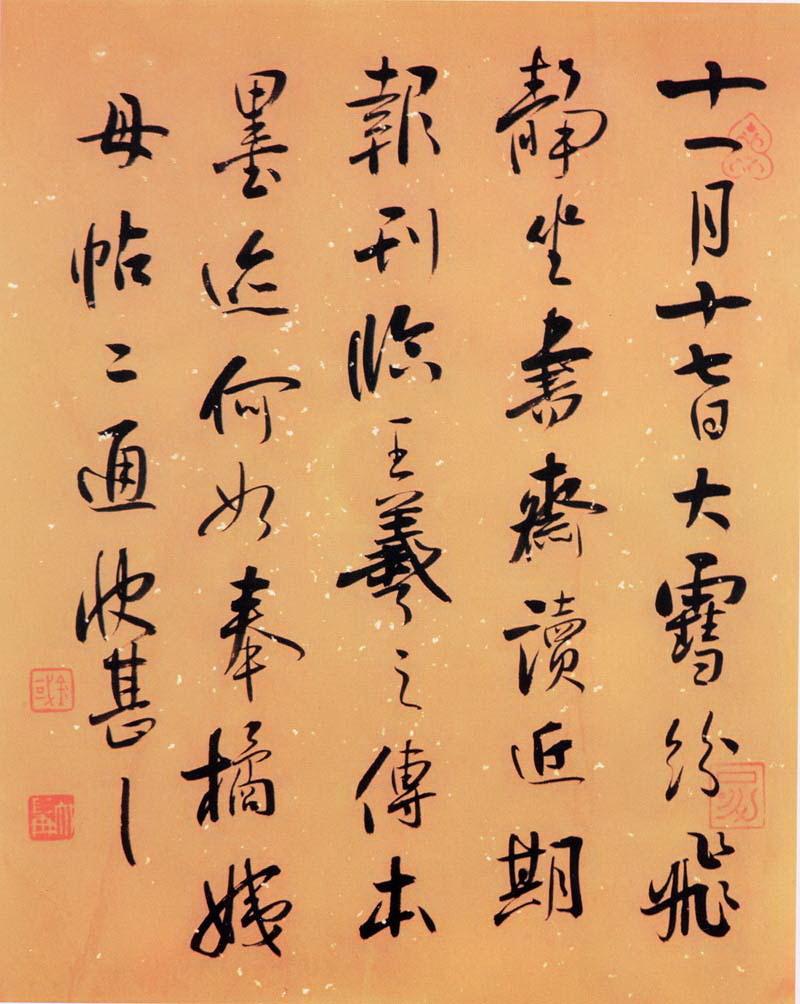 十一月十七日大雪纷飛
静坐書齋讀近期
報刊臨王羲之傳本
墨迹何如奉橘姨
母帖二通快甚